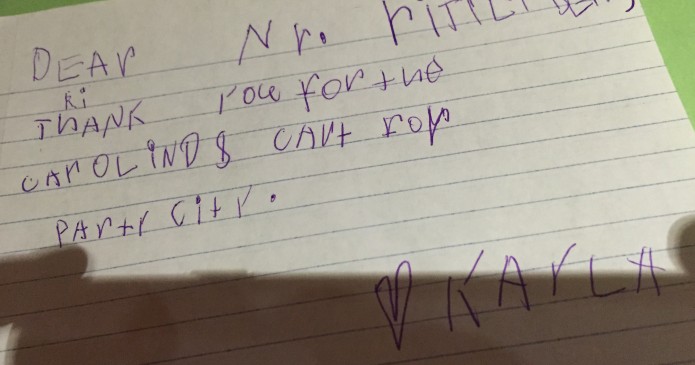 DEAr Nr.
ki
THANK rou for the
CArOLINDS CArt for
PArtr Citr.
♡ KArLA